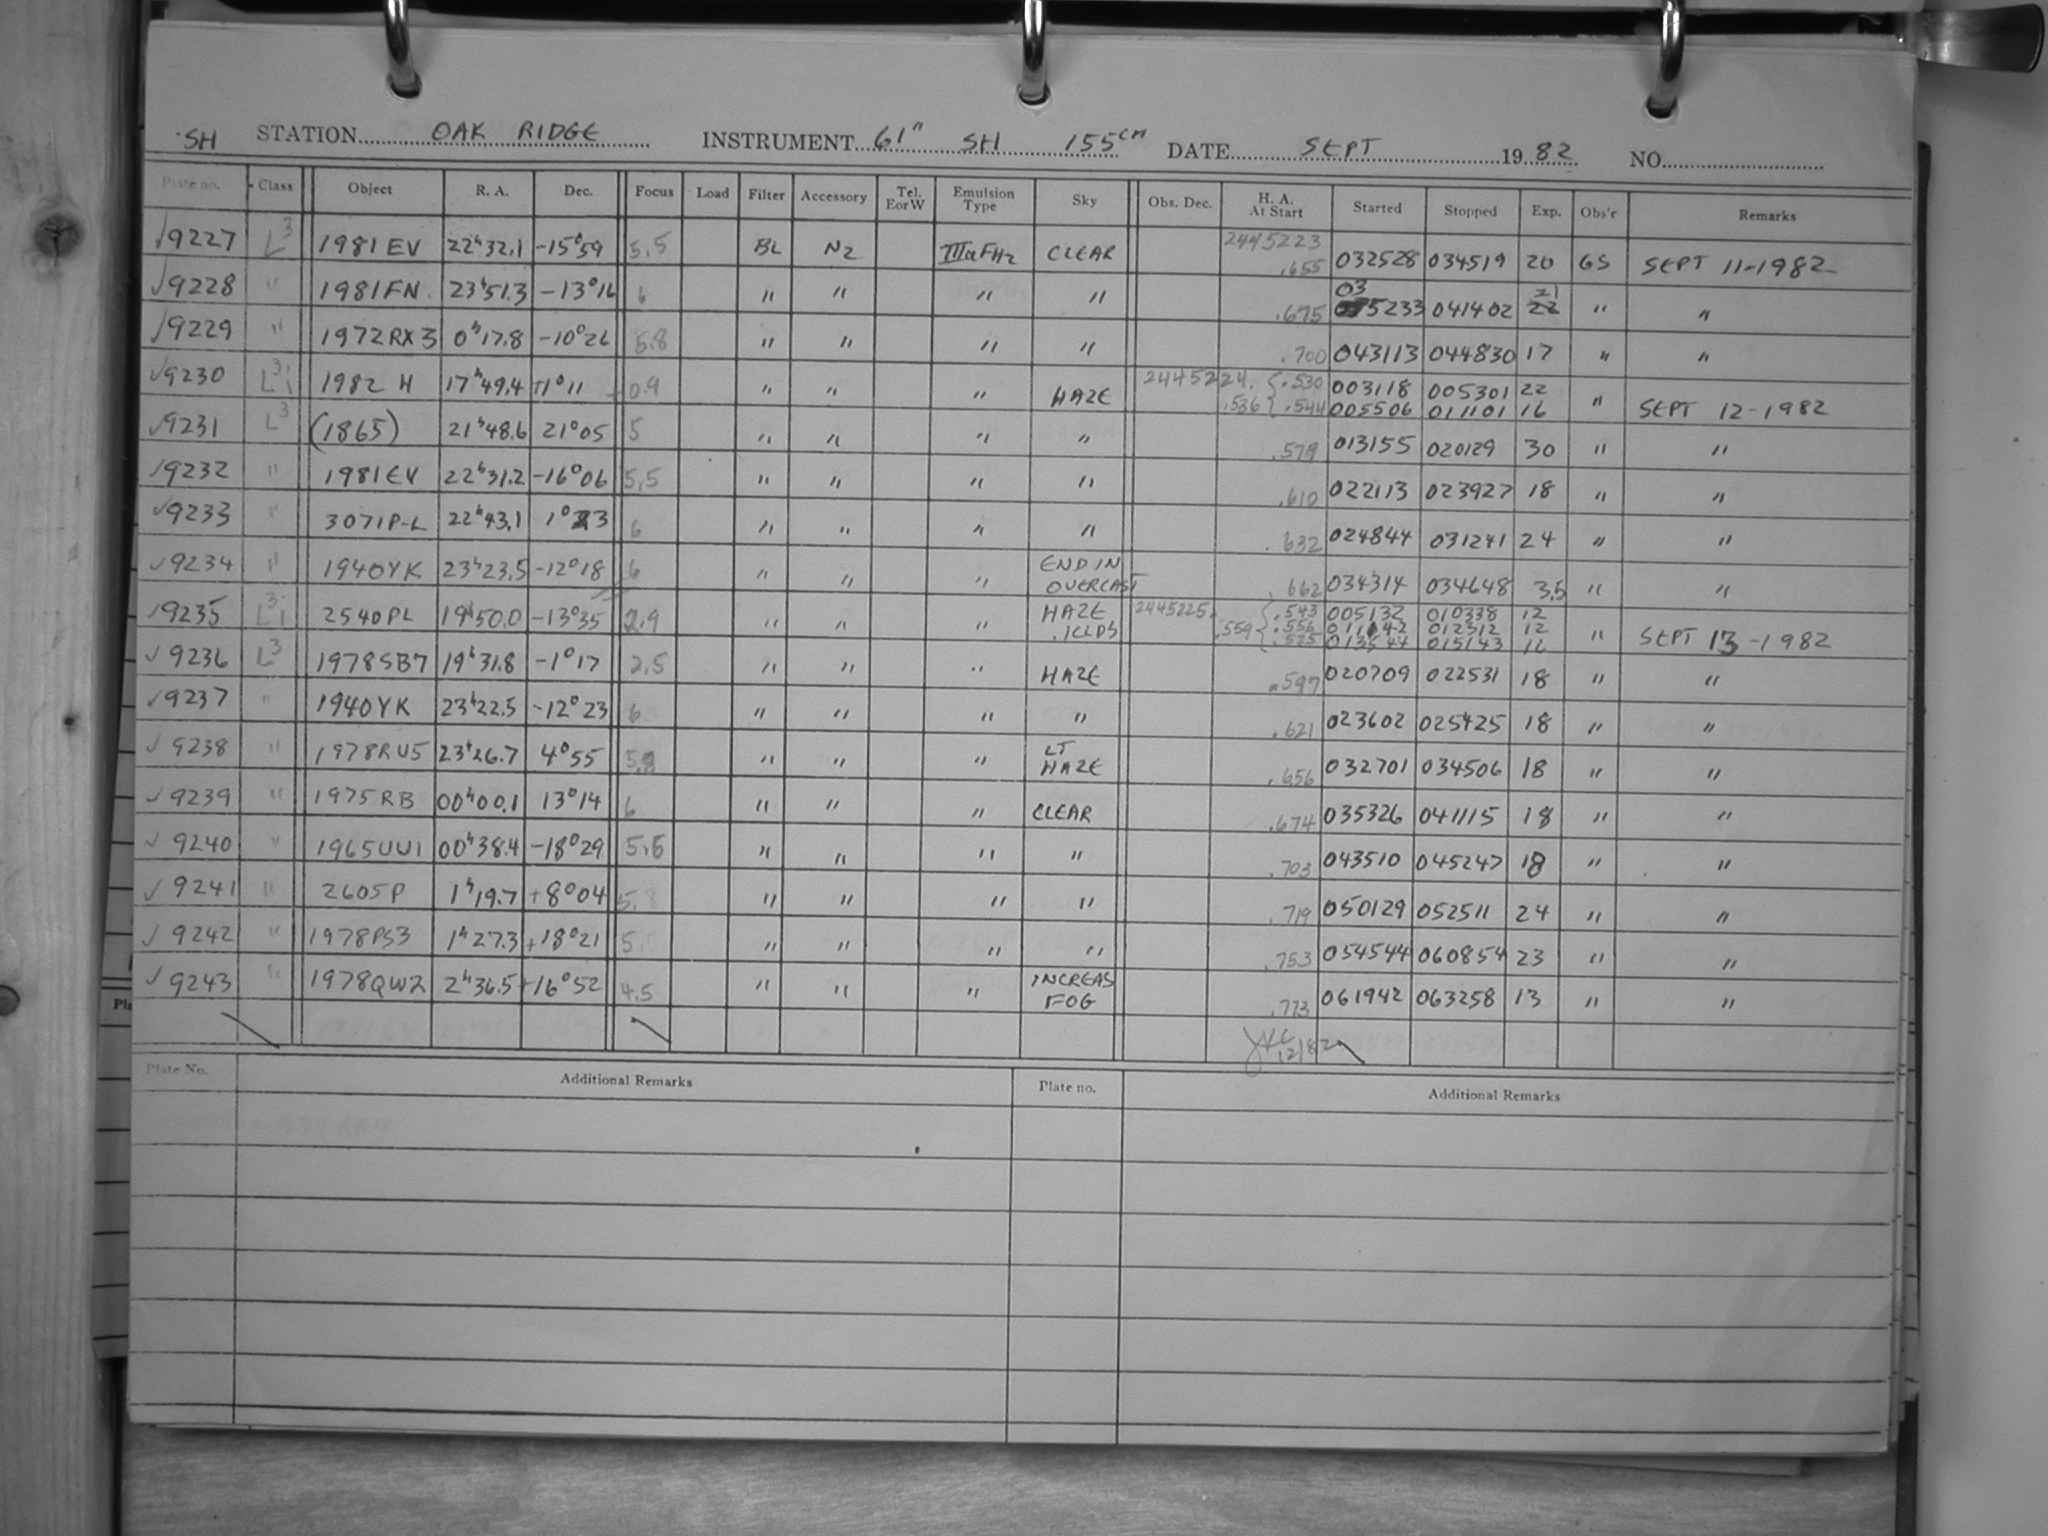 SH STATION OAK RIDGE INSTRUMENT 61" SH 155cm DATE SEPT 1982 NO.
Plate no. Class Object R. A. Dec. Focus Load Filter Accessory Tel. E or W Emulsion Type Sky Obs. Dec. H. A. At Start Started Stopped Exp. Obs'r Remarks
✓9227 L3 1981 EV 22h32.1 -15°59 5.5 BL N2 IIIaFH2 CLEAR 2445223 .655 032528 034519 20 GS SEPT 11-1982
✓9228 " 1981FN 23h51.3 -13°16 6 " " " " .675 03 5233 041402 21 22 " "
✓9229 " 1972RX3 0h17.8 -10°26 5.8 " " " " .700 043113 044830 17 " "
✓9230 L3i 1982 H 17h49.4 +1°11 +0.9 " " " HAZE 2445224. .530 003118 005301 22 "
.536 .544 005506 011101 16 SEPT 12-1982
✓9231 L3 (1865) 21h48.6 21°05 5 " " " " .579 013155 020129 30 " "
✓9232 " 1981EV 22h31.2 -16°06 5.5 " " " " .610 022113 023927 18 " "
✓9233 " 3071P-L 22h43.1 1°23 6 " " " " .632 024844 031241 24 " "
✓9234 " 1940YK 23h23.5 -12°18 6 " " " END IN OVERCAST .662 034314 034648 3.5 " "
✓9235 L3i 2540PL 19h50.0 -13°35 2.9 " " " HAZE 2445225. .543 005132 010338 12
.ICLDS .559 .556 011142 012312 12 " SEPT 13-1982
.575 013544 015143 16
✓9236 L3 1978SB7 19h31.8 -1°17 2.5 " " " HAZE .597 020709 022531 18 " "
✓9237 " 1940YK 23h22.5 -12°23 6 " " " " .621 023602 025425 18 " "
✓9238 " 1978RU5 23h26.7 4°55 5.8 " " " LT HAZE .656 032701 034506 18 " "
✓9239 " 1975RB 00h00.1 13°14 6 " " " CLEAR .674 035326 041115 18 " "
✓9240 " 1965UU1 00h38.4 -18°29 5.5 " " " " .703 043510 045247 18 " "
✓9241 " 2605P 1h19.7 +8°04 5.8 " " " " .719 050129 052511 24 " "
✓9242 " 1978PS3 1h27.3 +18°21 5.5 " " " " .753 054544 060854 23 " "
✓9243 " 1978QW2 2h36.5 +16°52 4.5 " " " INCREAS FOG .773 061942 063258 13 " "
12/82
Plate No. Additional Remarks Plate no. Additional Remarks